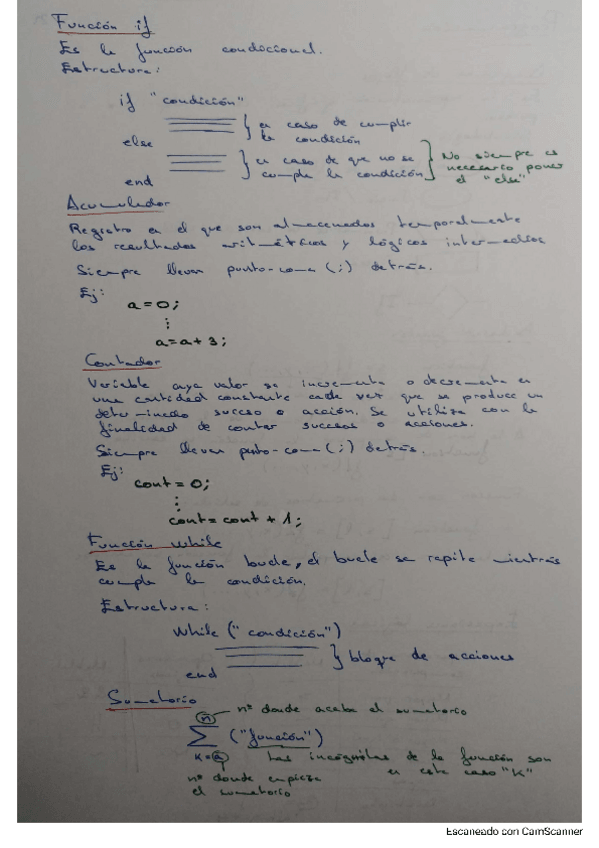 Función if
Es la función condicional.
Estructura:
if "condición"
} en caso de cumplir
la condición
else
} en caso de que no se
cumpla la condición
} No siempre es
necesario poner
el "else"
end
Acumulador
Registro en el que son almacenados temporalmente
los resultados aritméticos y lógicos intermedios
Siempre llevan punto-coma (;) detrás.
Ej:
a=0;
⋮
a=a+3;
Contador
Variable cuyo valor se incrementa o decrementa en
una cantidad constante cada vez que se produce un
determinado suceso o acción. Se utiliza con la
finalidad de contar sucesos o acciones.
Siempre llevan punto-coma (;) detrás.
Ej:
cont=0;
⋮
cont=cont + 1;
Función while
Es la función bucle, el bucle se repite mientras
cumpla la condición.
Estructura:
While ("condición")
} bloque de acciones
end
Sumatorio
n → nº donde acaba el sumatorio
∑ ("función")
K=a Las incógnitas de la función son
en este caso "K"
nº donde empieza
el sumatorio
Escaneado con CamScanner